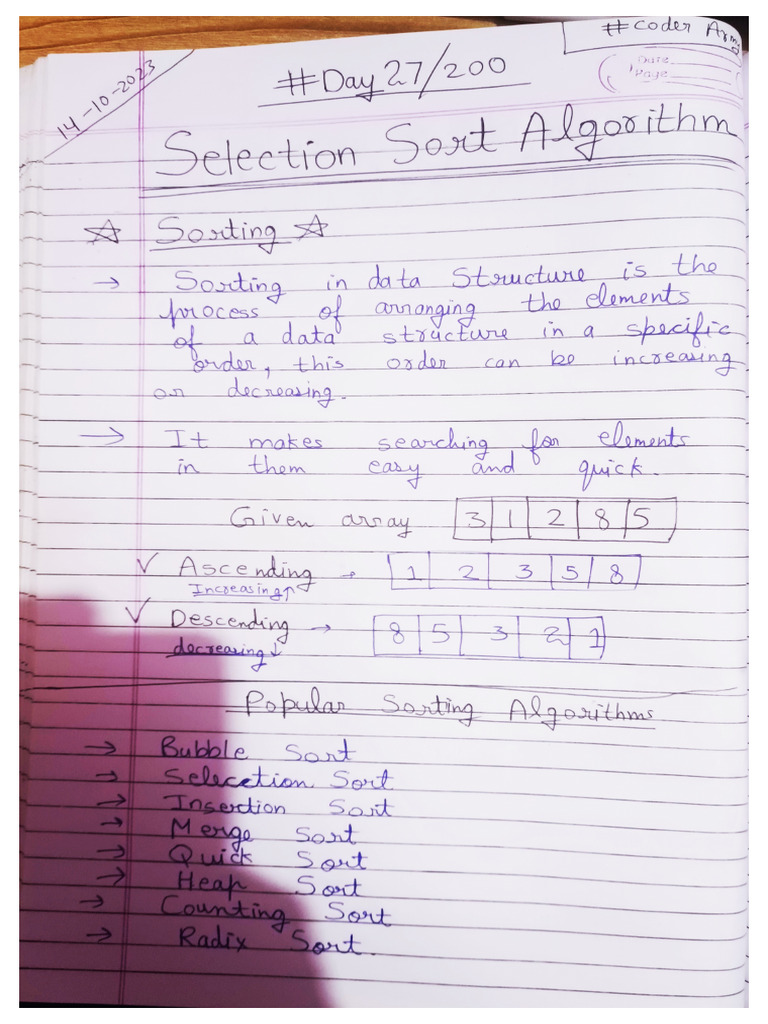 #Coder Army
14-10-2023
#Day 27/200
Date
Page
Selection Sort Algorithm
☆ Sorting ☆
→ Sorting in data Structure is the
process of arranging the elements
of a data structure in a specific
order, this order can be increasing
or decreasing.
→ It makes searching for elements
in them easy and quick.
Given array 3 1 2 8 5
✓ Ascending → 1 2 3 5 8
Increasing↑
✓ Descending → 8 5 3 2 1
decreasing↓
Popular Sorting Algorithms
→ Bubble Sort
→ Selecetion Sort
→ Insertion Sort
→ Merge Sort
→ Quick Sort
→ Heap Sort
→ Counting Sort
→ Radix Sort.